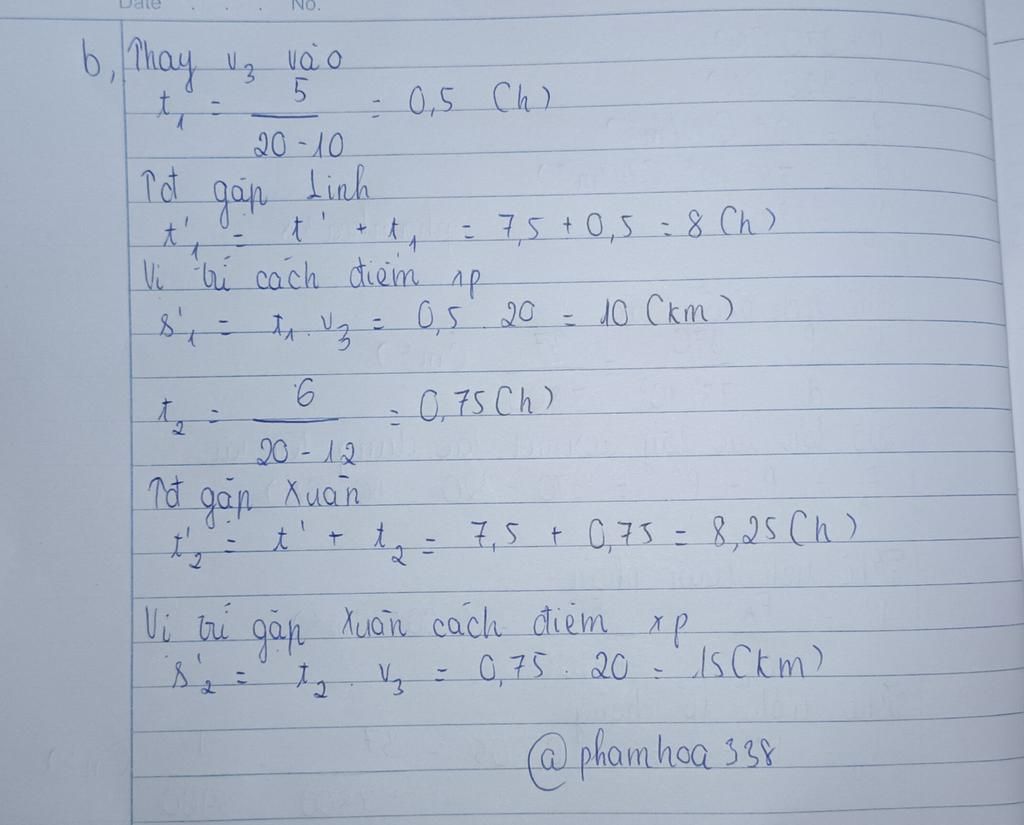 Date . . . No.
b, Thay v₃ vào
t₁ = 5 / (20 - 10) = 0,5 (h)
Tđ gặp Linh
t'₁ = t' + t₁ = 7,5 + 0,5 = 8 (h)
Vị trí cách điểm xp
s'₁ = t₁ . v₃ = 0,5 . 20 = 10 (km)
t₂ = 6 / (20 - 12) = 0,75 (h)
Tđ gặp Xuân
t'₂ = t' + t₂ = 7,5 + 0,75 = 8,25 (h)
Vị trí gặp Xuân cách điểm xp
s'₂ = t₂ . v₃ = 0,75 . 20 = 15 (km)
@phamhoa338